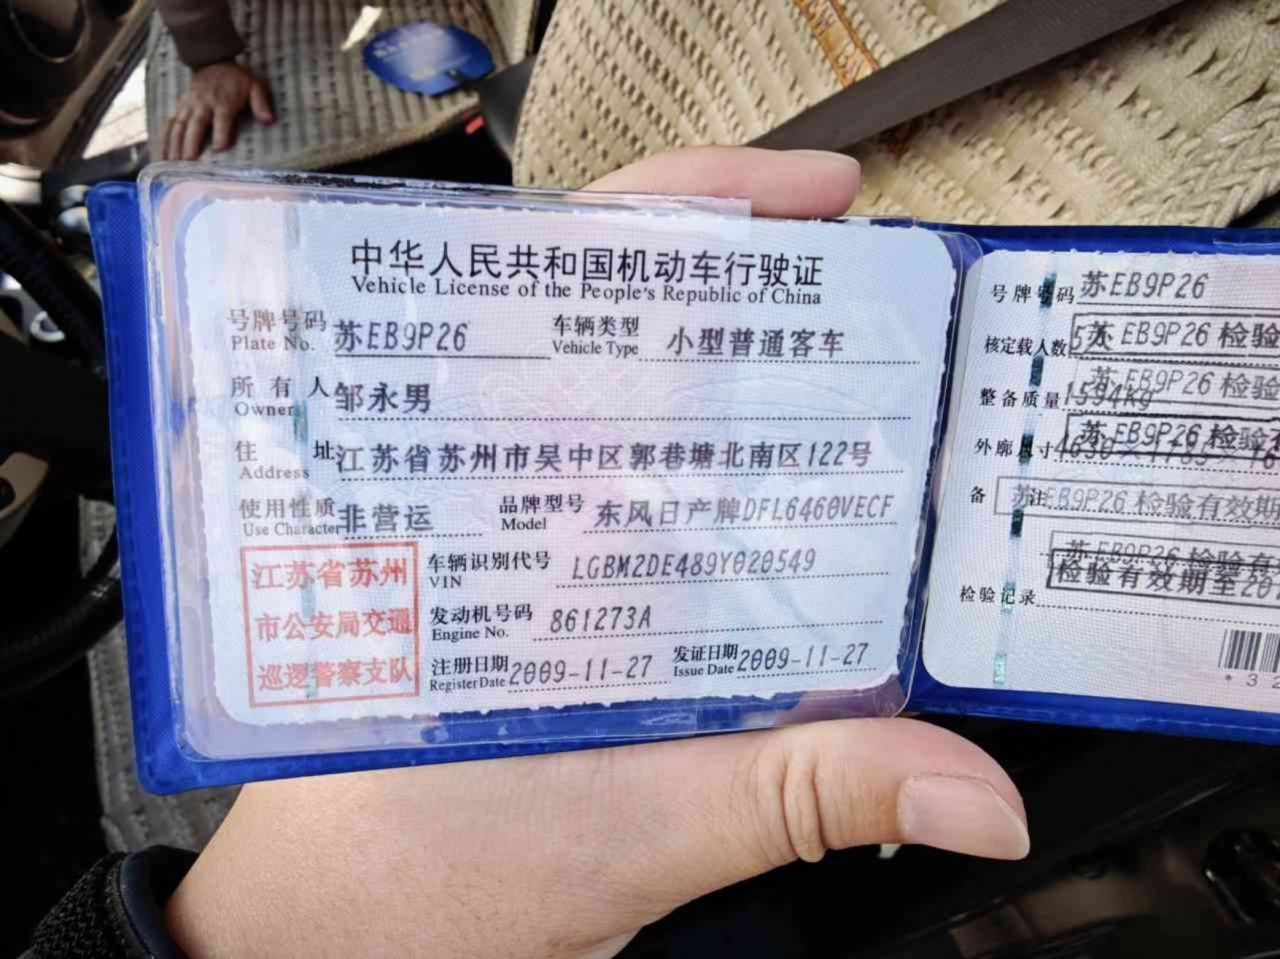 中华人民共和国机动车行驶证
Vehicle License of the People's Republic of China
号牌号码 苏EB9P26 车辆类型 小型普通客车
Plate No. Vehicle Type
所有人 邹永男
Owner
住址 江苏省苏州市吴中区郭巷塘北南区122号
Address
使用性质 非营运 品牌型号 东风日产牌DFL6460VECF
Use Character Model
江苏省苏州
市公安局交通
巡逻警察支队
车辆识别代号 LGBM2DE489Y020549
VIN
发动机号码 861273A
Engine No.
注册日期 2009-11-27 发证日期 2009-11-27
Register Date Issue Date
号牌号码 苏EB9P26
核定载人数 5人
苏EB9P26 检验
整备质量 1594kg
苏EB9P26 检验
外廓尺寸
苏EB9P26 检验
备注
苏EB9P26 检验有效期
苏EB9P26 检验有
检验有效期至20
检验记录